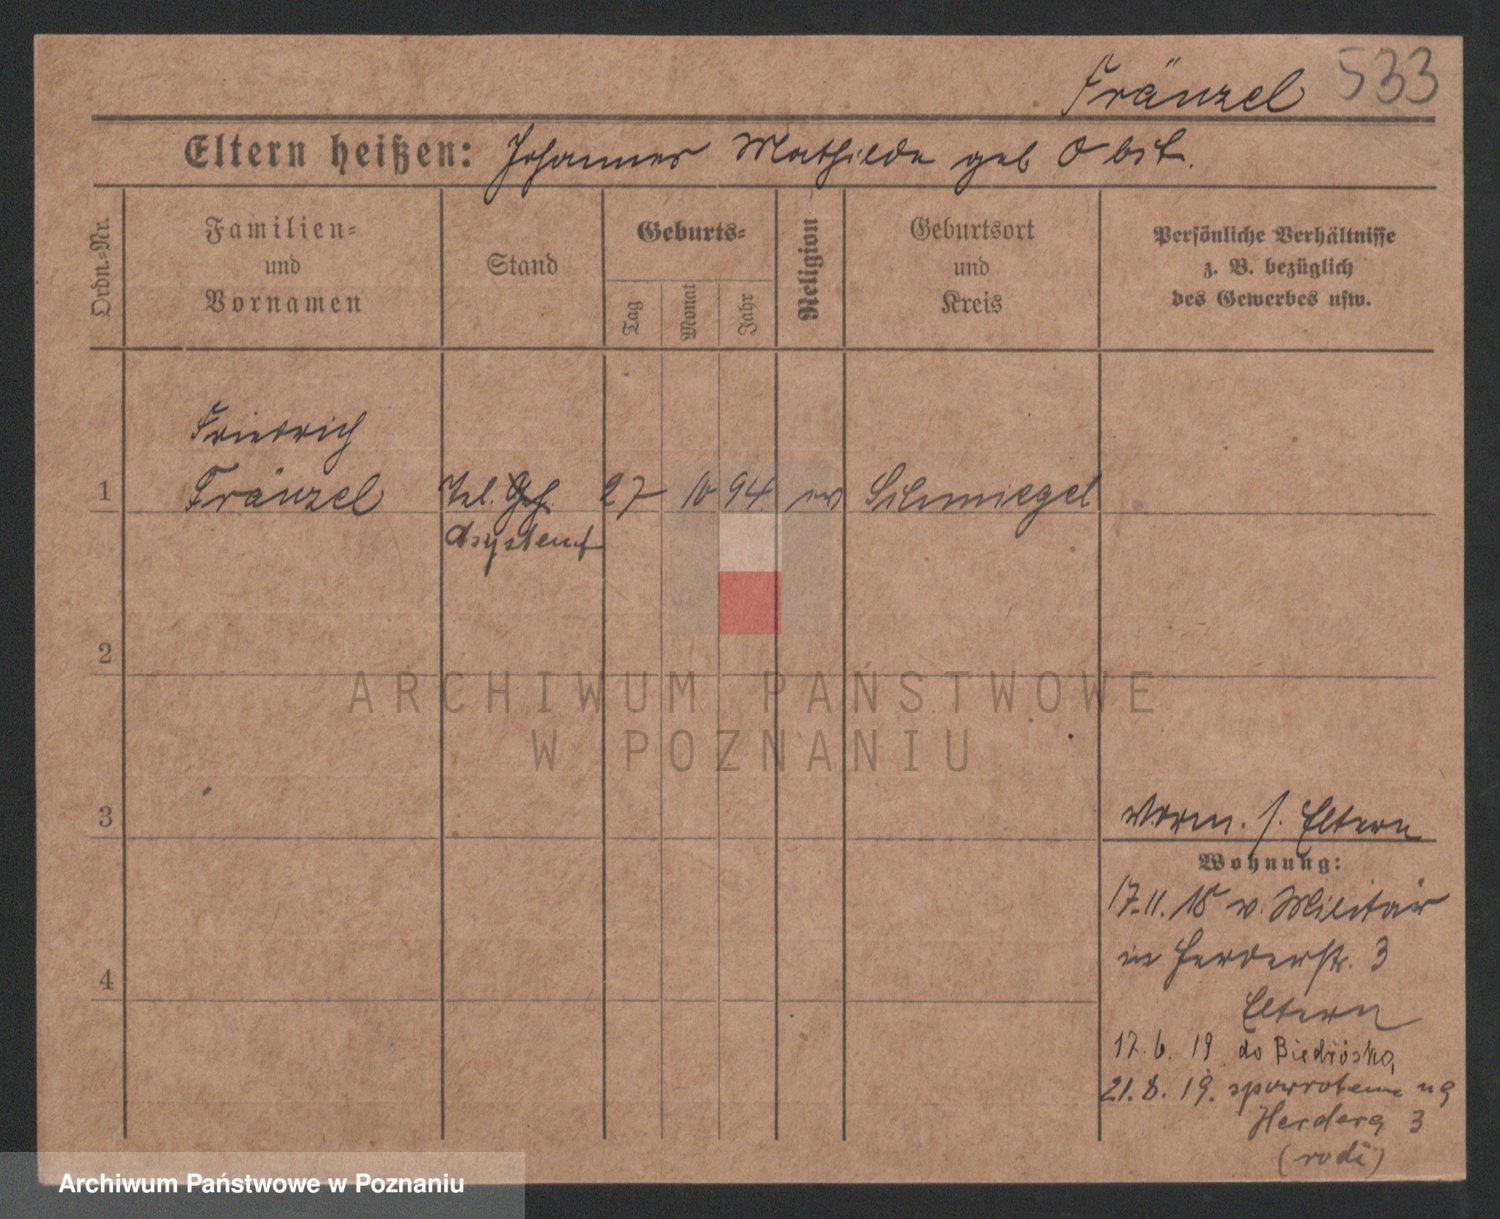 Fränzel 533
Eltern heißen: Johannes Mathilde geb Obst.
Ordn.-Nr.
Familien-
und
Vornamen
Stand
Geburts-
Tag
Monat
Jahr
Religion
Geburtsort
und
Kreis
Persönliche Verhältnisse
z. B. bezüglich
des Gewerbes usw.
Friedrich
1 Fränzel Tel. Geh 27 10 94 ev Schmiegel
Asystent
2
ARCHIWUM PAŃSTWOWE
W POZNANIU
3
Vorm. s. Eltern
Wohnung:
17.11.18 v. Militär
in Herderstr. 3
4
Eltern
17.6.19 do Biedróska
21.8.19. spowrotem na
Herdera 3
(rodź)
Archiwum Państwowe w Poznaniu